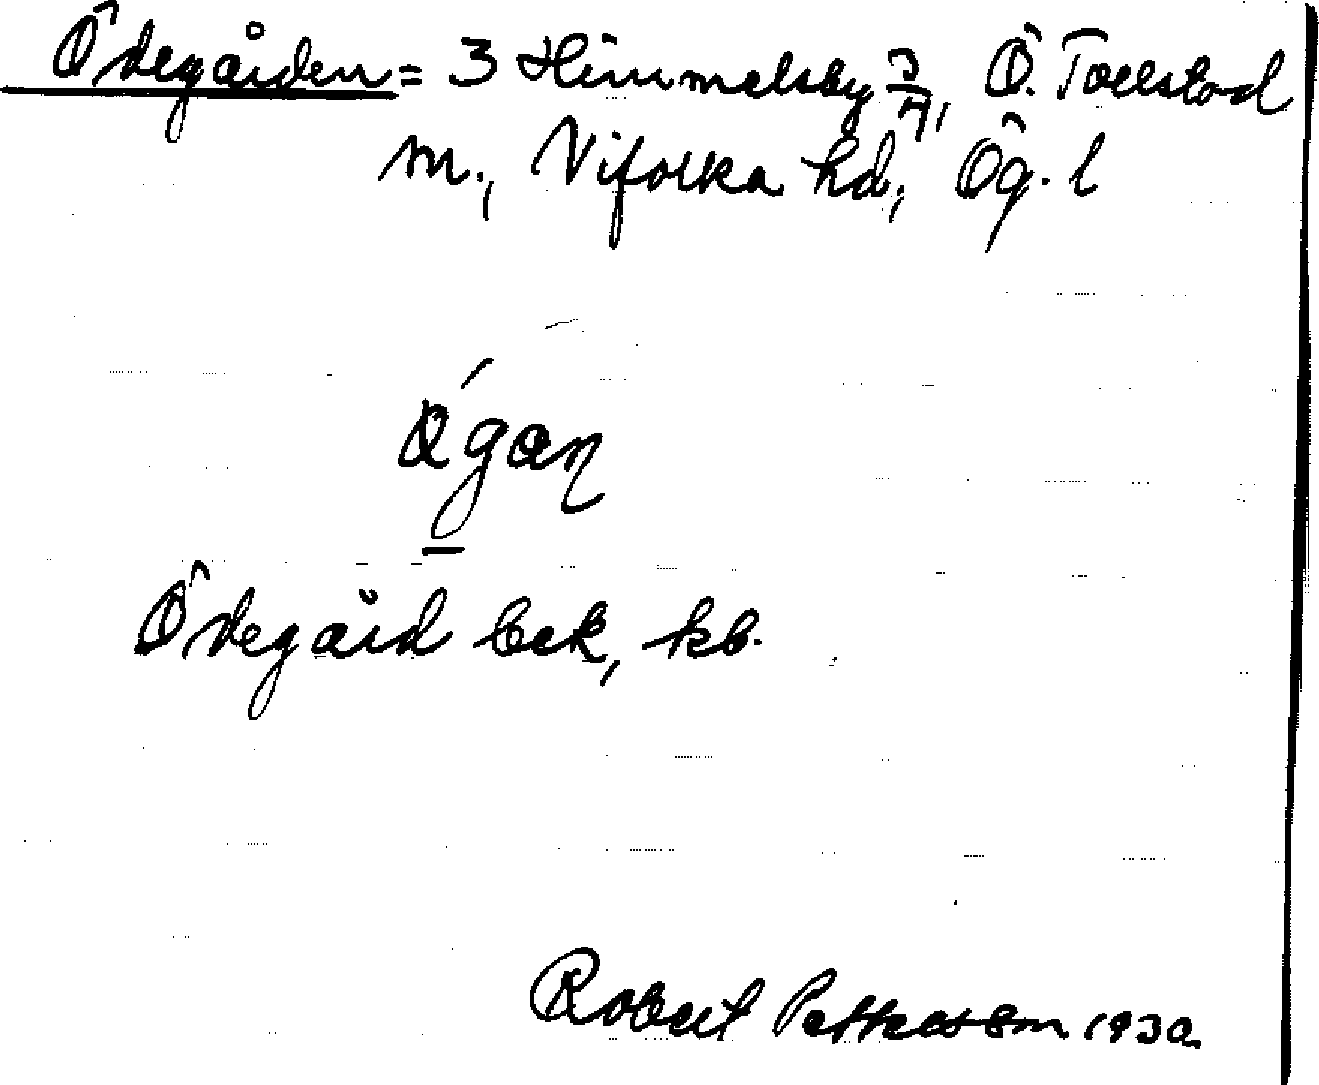 Ödegården = 3 Himmelsby 3/4, Ö. Tollstad
m., Vifolka hd, Ög. l
Ödegård bek, kb.
Robert Pettersson 1930